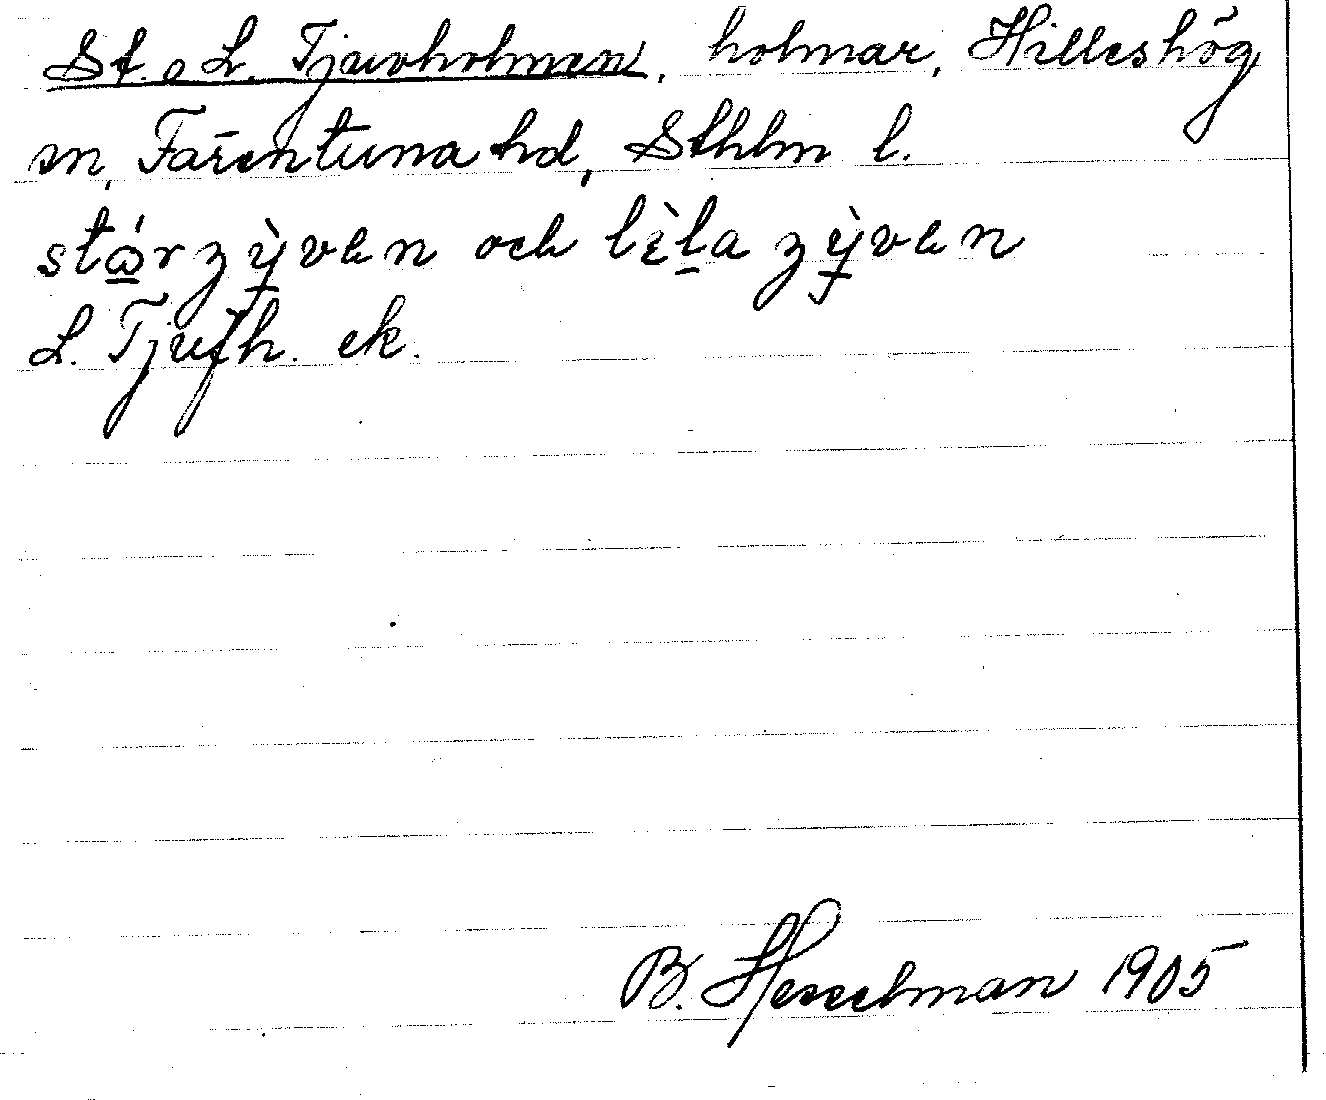 St. o L. Tjuvholmen, holmar, Hilleshög
sn, Färentuna hd, Sthlm l.
stárzỳven och lìla zỳven
L. Tjufh. ek.
B. Hesselman 1905